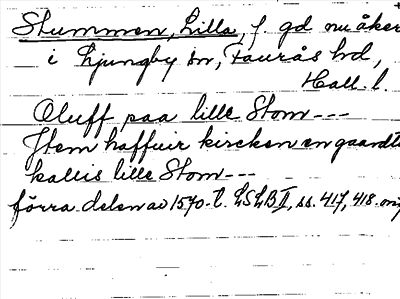 Stummen, Lilla, f gd nu åker
i Ljungby sn, Faurås hd,
Hall. l.
Oluff paa lille Stom ---
Jtem haffuir kircken en gaardt
kallis lille Stom ---
förra delen av 1570-t. LSLB II, ss. 417, 418.